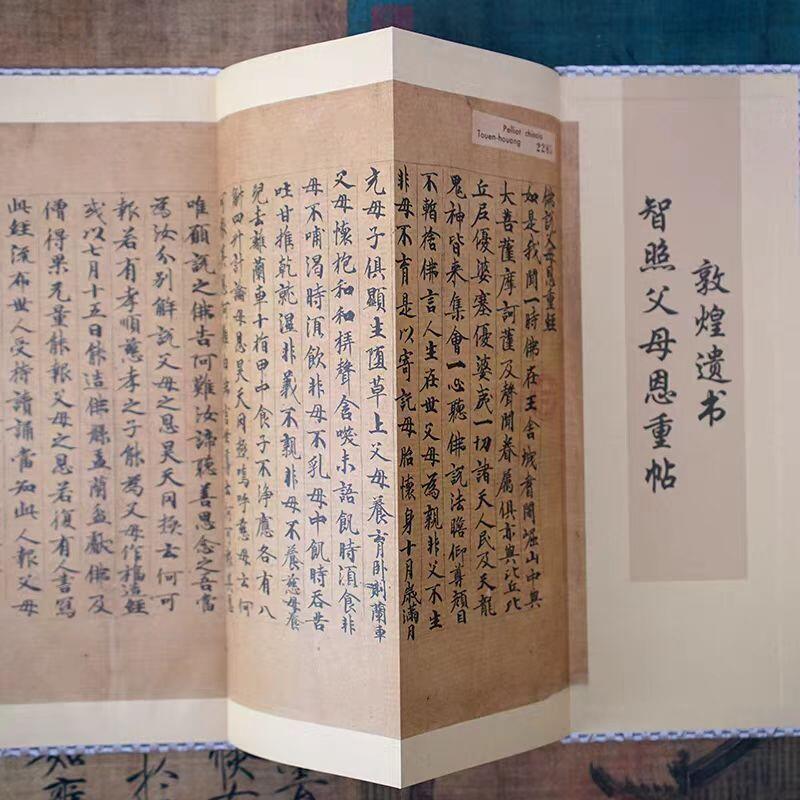 敦煌遗书
智照父母恩重帖
Pelliot chinois
Touen-houang 228
佛說父母恩重經
如是我聞一時佛在王舍城耆闍崛山中與
大菩薩摩訶薩及聲聞眷屬俱亦與比丘比
丘尼優婆塞優婆夷一切諸天人民及天龍
鬼神皆來集會一心聽佛說法瞻仰尊顏目
不暫捨佛言人生在世父母為親非父不生
非母不育是以寄託母胎懷身十月歲滿月
充母子俱顯生墮草上父母養育卧則蘭車
父母懷抱和和挵聲含笑未語飢時須食非
母不哺渴時須飲非母不乳母中飢時吞苦
吐甘推乾就濕非義不親非母不養慈母養
兒去離蘭車十指甲中食子不淨應各有八
斛四斗計論母恩昊天罔極嗚呼慈母云何
唯願說之佛告阿難汝諦聽善思念之吾當
為汝分別解說父母之恩昊天罔極云何可
報若有孝順慈孝之子能為父母作福造經
或以七月十五日能造佛槃盂蘭盆獻佛及
僧得果无量能報父母之恩若復有人書寫
此經流布世人受持讀誦當知此人報父母